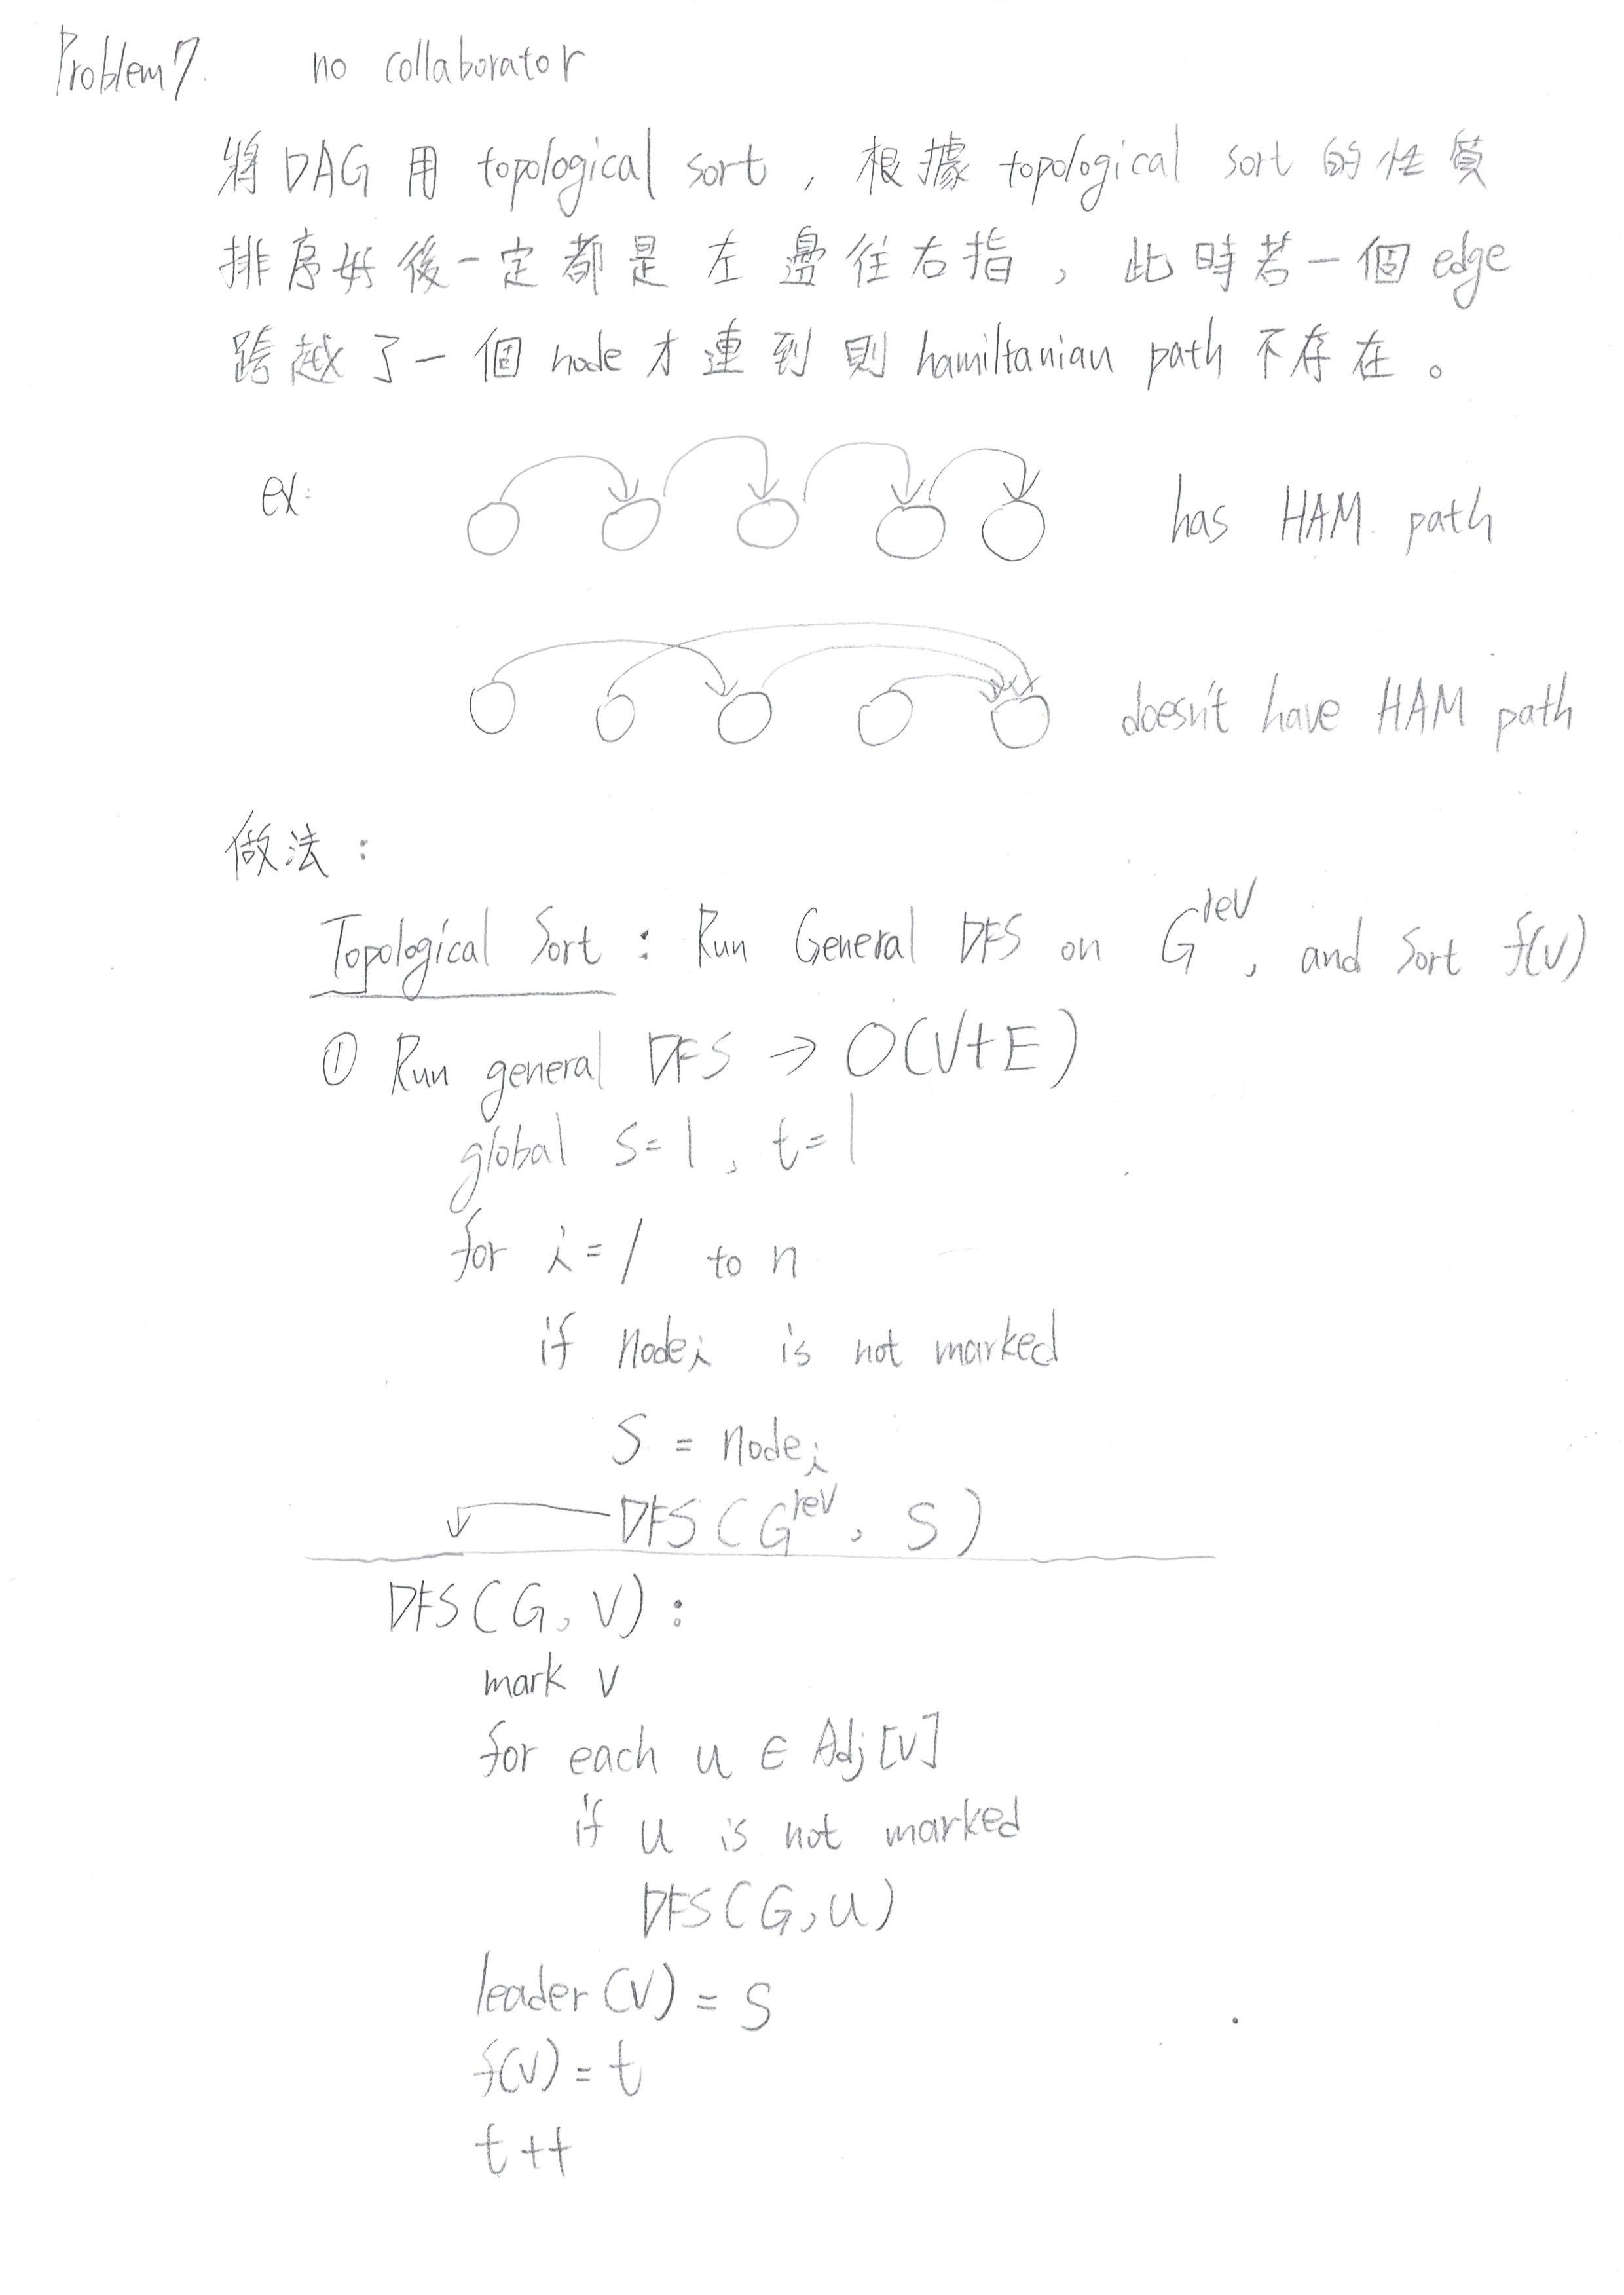 Problem 7.    no collaborator
將 DAG 用 topological sort , 根據 topological sort 的性質
排序好後一定都是左邊往右指 , 此時若一個 edge
跨越了一個 node 才連到則 hamiltanian path 不存在。
ex:    has HAM. path
doesn't have HAM path
做法 :
Topological Sort : Run General DFS on G^rev, and Sort f(v)
① Run general DFS → O(V+E)
global s=1, t=1
for i=1 to n
if node_i is not marked
S = node_i
DFS(G^rev, S)
DFS(G, V) :
mark v
for each u ∈ Adj[v]
if u is not marked
DFS(G, u)
leader(v) = S
f(v) = t
t++